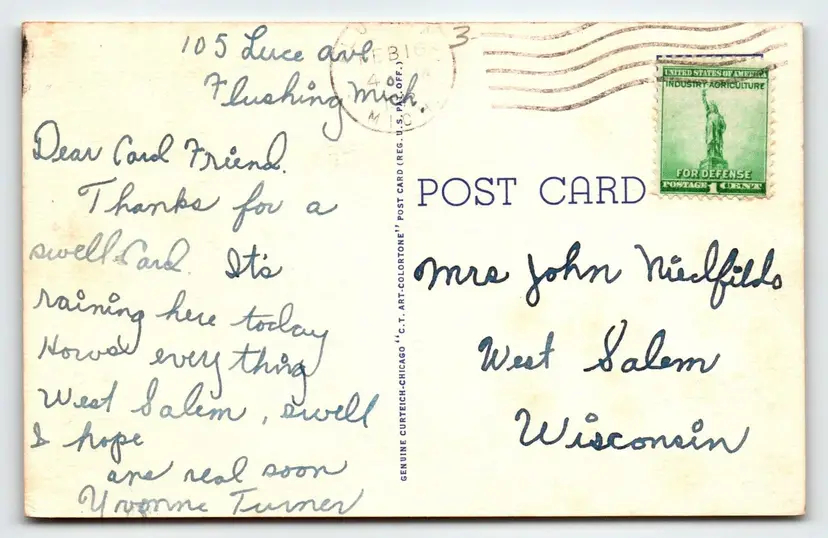 105 Luce ave
Flushing Mich.
Dear Card Friend.
Thanks for a
swell Card. It's
raining here today
How's every thing
West Salem, swell
I hope
ans real soon
Yvonne Turner
GENUINE CURTEICH-CHICAGO "C.T. ART-COLORTONE" POST CARD (REG. U.S. PAT. OFF.)
3
UNITED STATES OF AMERICA
INDUSTRY AGRICULTURE
FOR DEFENSE
POSTAGE 1 CENT
POST CARD
Mrs John
West Salem
Wisconsin